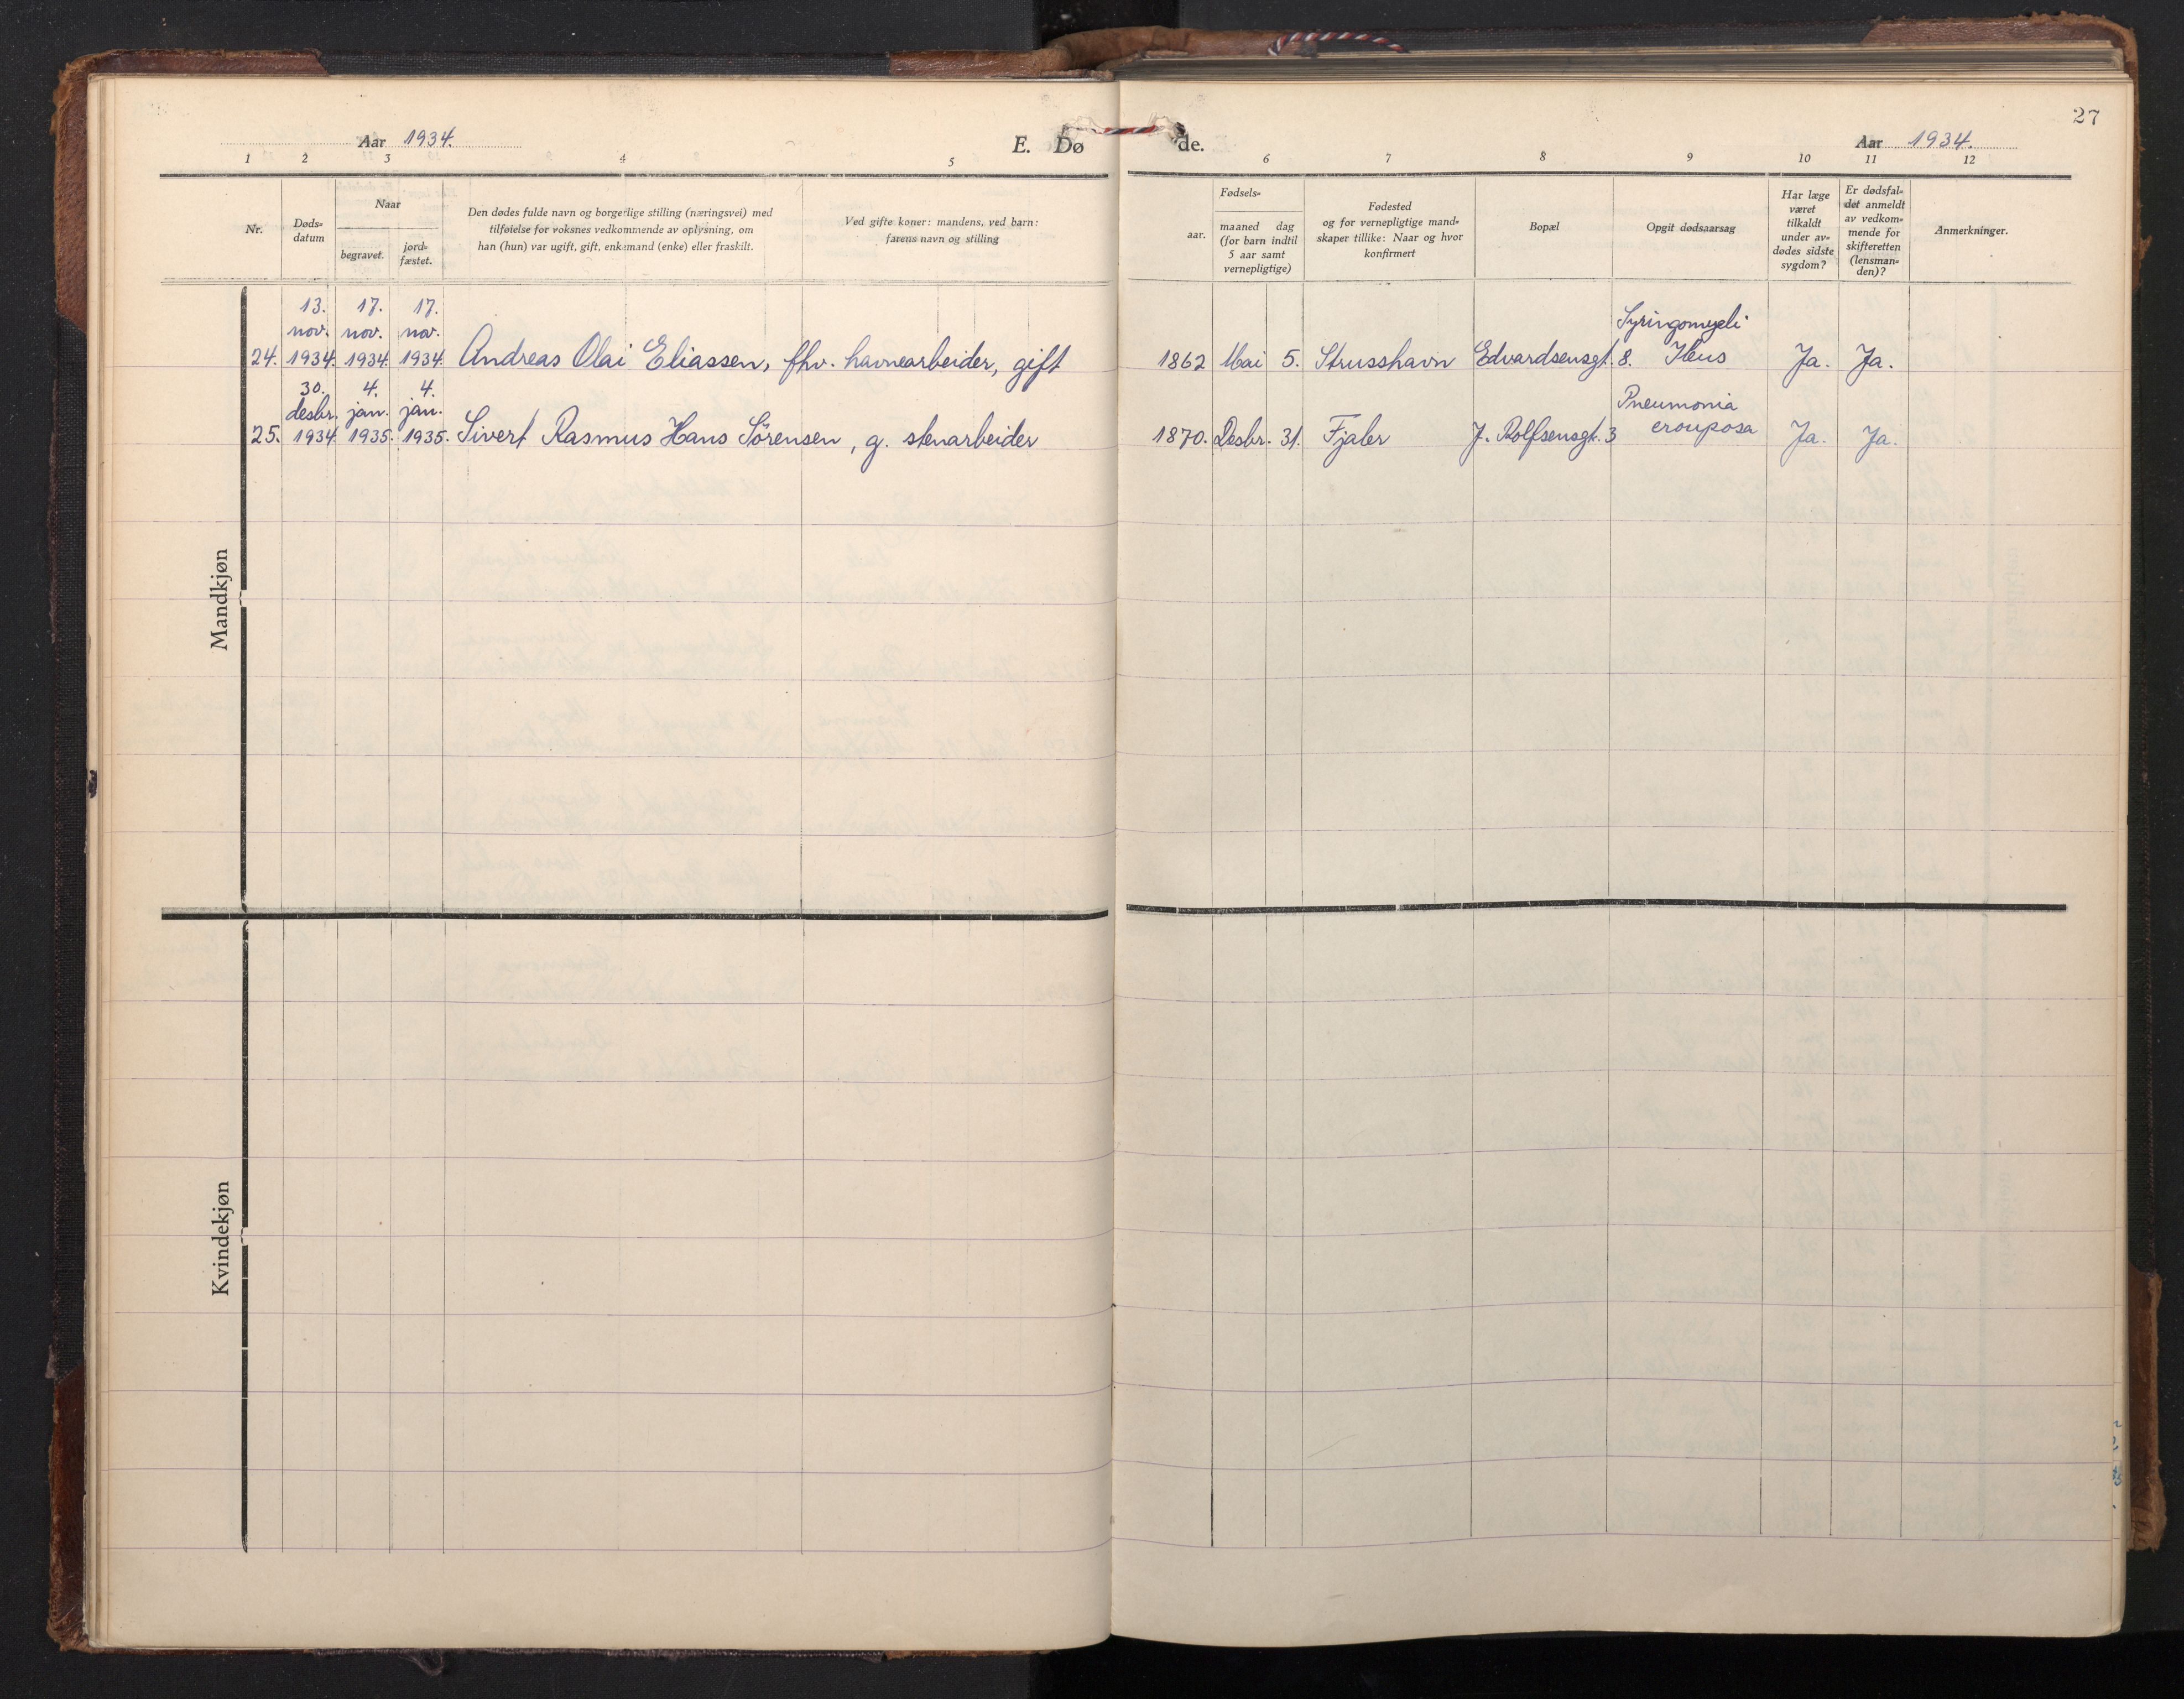 27
Aar 1934.
E. Dø
de.
Aar 1934.
1 2 3 4 5
6 7 8 9 10 11 12
Nr.
Døds-
datum
Naar
begravet.
jord-
fæstet.
Den dødes fulde navn og borgerlige stilling (næringsvei) med
tilføielse for voksnes vedkommende av oplysning, om
han (hun) var ugift, gift, enkemand (enke) eller fraskilt.
Ved gifte koner: mandens, ved barn:
farens navn og stilling
Fødsels-
aar.
maaned dag
(for barn indtil
5 aar samt
vernepligtige)
Fødested
og for vernepligtige mand-
skaper tillike: Naar og hvor
konfirmert
Bopæl
Opgit dødsaarsag
Har læge
været
tilkaldt
under av-
dødes sidste
sygdom?
Er dødsfal-
det anmeldt
av vedkom-
mende for
skifteretten
(lensman-
den)?
Anmerkninger.
Mandkjøn
13. 17. 17.
nov. nov. nov. Syringomyeli
24. 1934. 1934. 1934. Andreas Olai Eliassen, fhv. havnearbeider, gift 1862 Mai 5. Strusshavn Edvardsensgt. 8. Ileus Ja. Ja.
30. 4. 4.
desbr. jan. jan. Pneumonia
25. 1934. 1935. 1935. Sivert Rasmus Hans Sörensen, g. stenarbeider 1870. Desbr. 31. Fjaler J. Rolfsensgt. 3 crouposa Ja. Ja.
Kvindekjøn